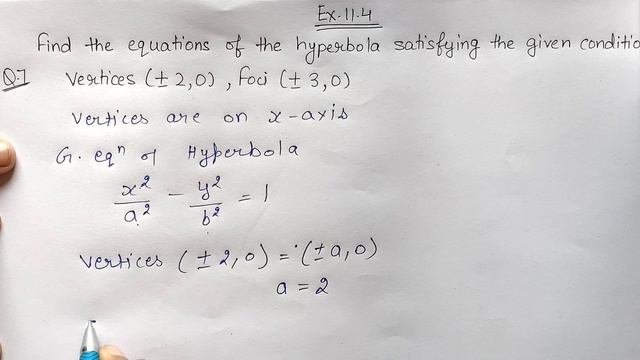 Ex.11.4
Find the equations of the hyperbola satisfying the given conditio
Q.7 Vertices (± 2,0), Foci (± 3,0)
Vertices are on x-axis
G. eqⁿ of Hyperbola
x²/a² - y²/b² = 1
Vertices (± 2,0) = (± a,0)
a = 2